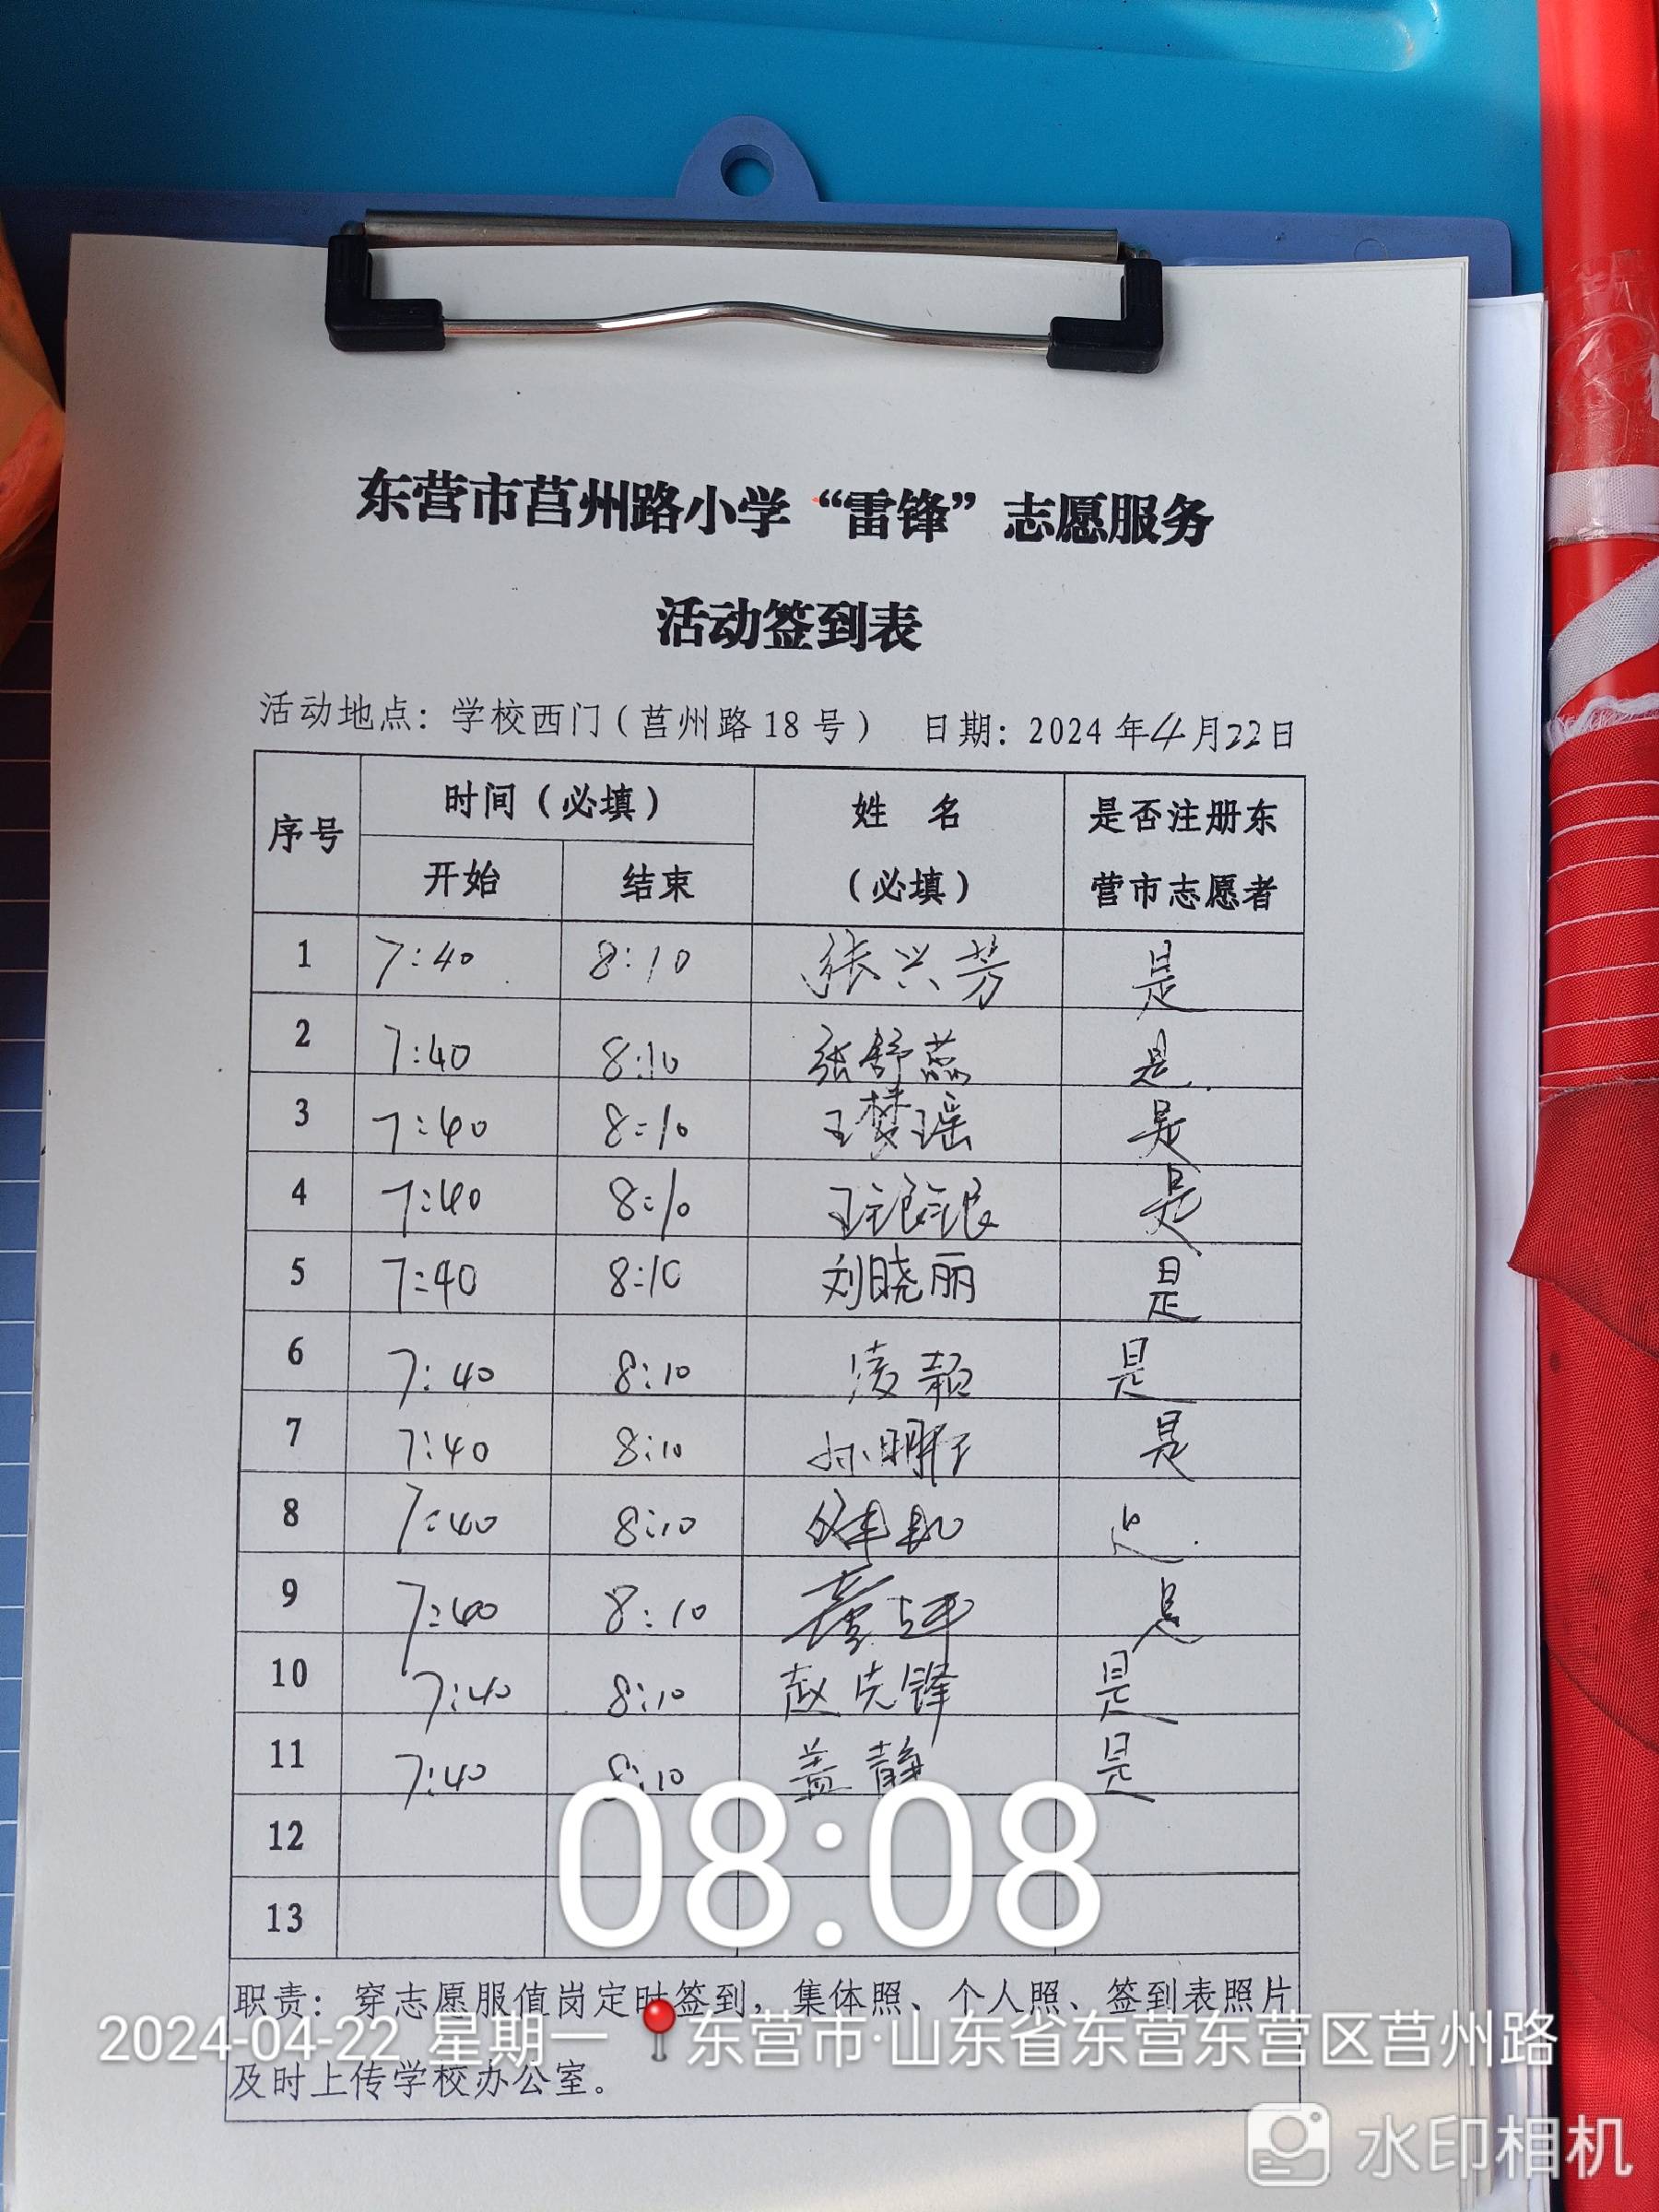 东营市莒州路小学“雷锋”志愿服务
活动签到表
活动地点：学校西门（莒州路18号） 日期：2024年4月22日
序号 时间（必填） 姓 名 是否注册东
开始 结束 （必填） 营市志愿者
1 7:40 8:10 张兴芳 是
2 7:40 8:10 张舒燕 是
3 7:40 8:10 王梦瑶 是
4 7:40 8:10 王 是
5 7:40 8:10 刘晓丽 是
6 7:40 8:10 凌 是
7 7:40 8:10 孙明 是
8 7:40 8:10 是
9 7:40 8:10 是
10 7:40 8:10 赵先锋 是
11 7:40 8:10 盖静 是
12
13
08:08
职责：穿志愿服值岗定时签到，集体照、个人照、签到表照片
2024-04-22 星期一 东营市·山东省东营东营区莒州路
及时上传学校办公室。
水印相机